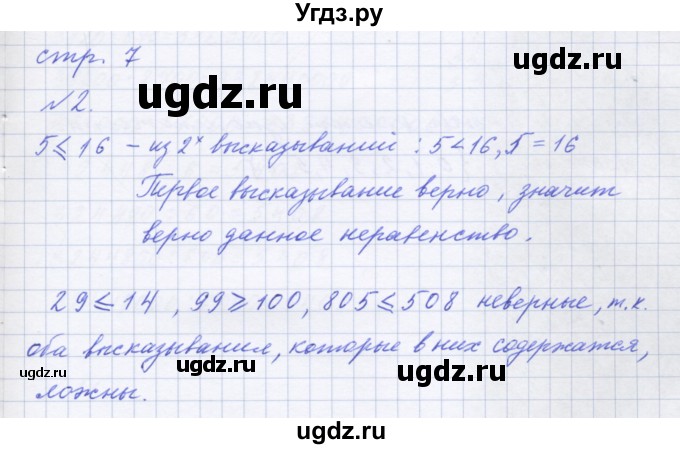 Угдз.ру
стр. 7
№2.
ugdz.ru ugdz.ru
5 ⩽ 16 – из 2х высказываний : 5 < 16, 5 = 16
Первое высказывание верно, значит
верно данное неравенство.
29 ⩽ 14 , 99 ⩾ 100, 805 ⩽ 508 неверные, т.к.
оба высказывания, которые в них содержатся,
ugdz.ru ugdz.ru
ложны.
ugdz.ru